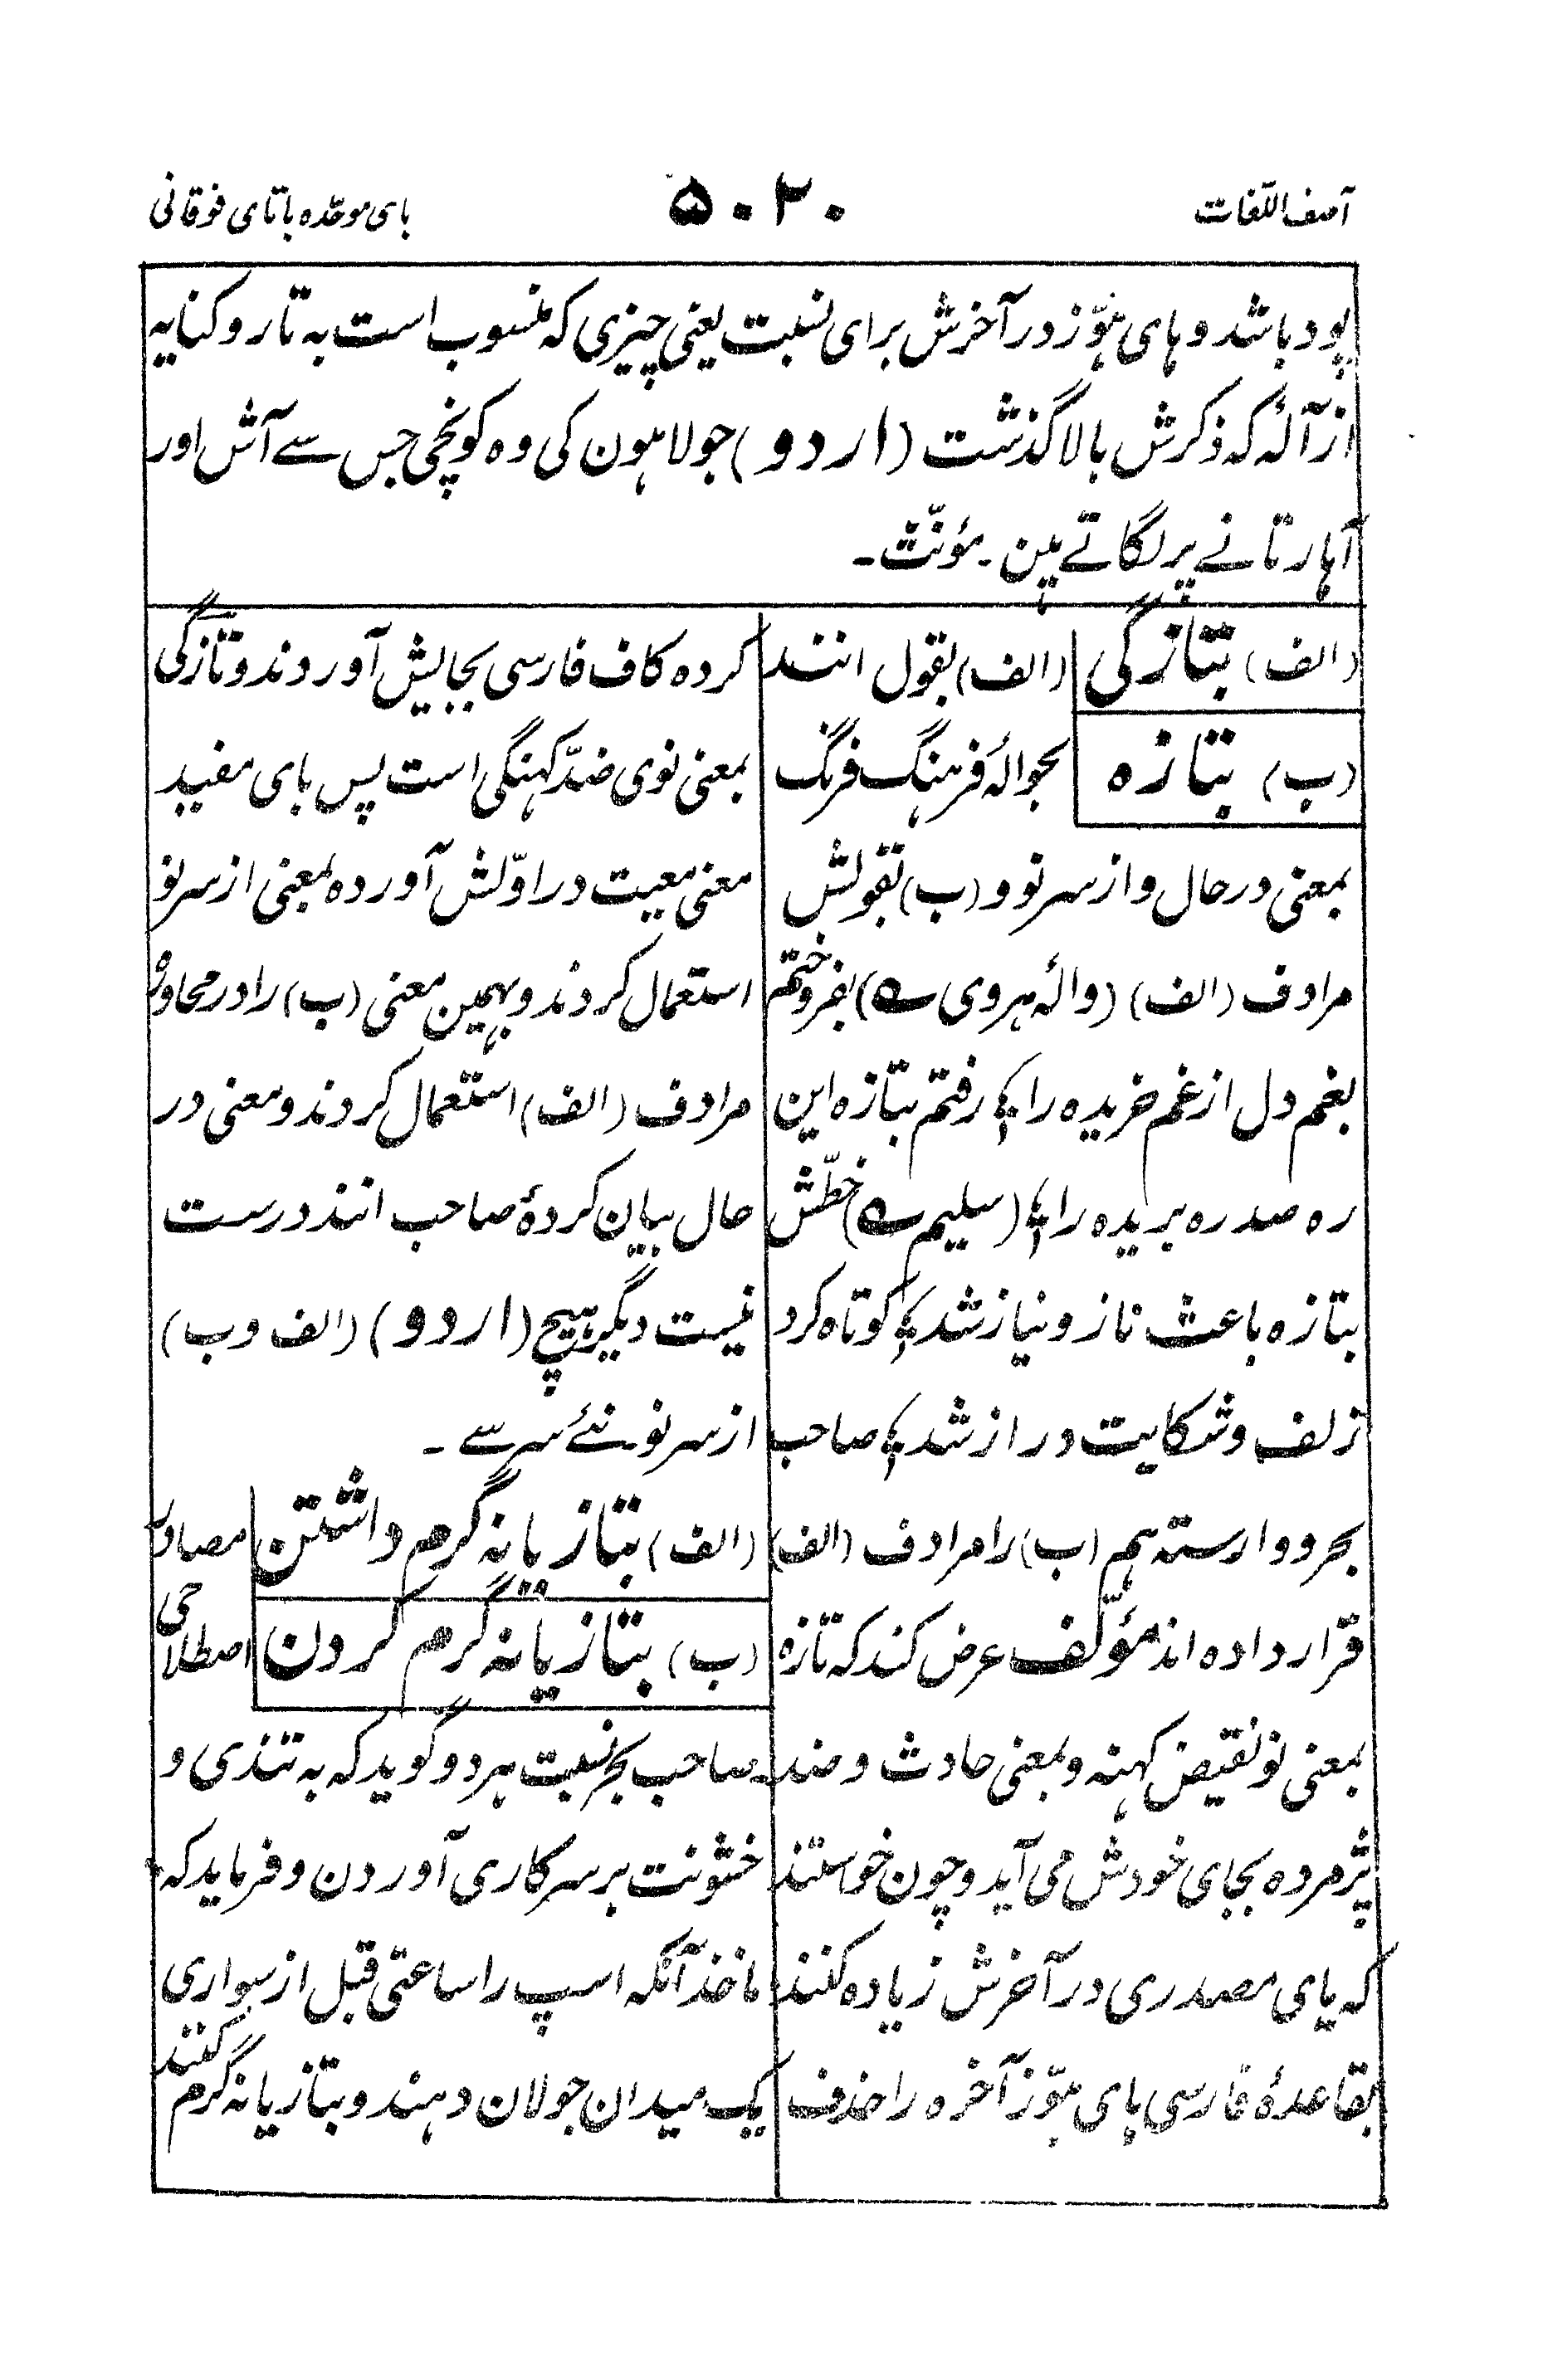 آصف اللّغات
۵۰۲۰
بای موحّده باتای فوقانی
پود باشد و ہای ہوّز در آخرش برای نسبت یعنی چیزی کہ منسوب است بہ تار و کنایہ
از آلۂ کہ ذکرش بالا گذشت (اردو) جولاہون کی وہ کونچی جس سے آش اور
آہار تانے پر لگاتے ہین ۔ مؤنّث ۔
(الف) بتازگی (الف) بقول انند
(ب) بتازہ بحوالۂ فرہنگ فرنگ
بمعنی در حال و از سر نو و (ب) بقولش
مرادف (الف) (والہ ہروی ؎) بفروختم
بغم دل از غم خریدہ را ؛ رفتم بتازہ این
رہ صد رہ بریدہ را ؛ (سلیم ؎) خطّش
بتازہ باعث ناز و نیاز شد ؛ کوتاہ کرد
زلف و شکایت دراز شد ؛ صاحب
بحر و وارستہ ہم (ب) را مرادف (الف)
قرار دادہ اند مؤلّف عرض کند کہ تازہ
بمعنی نو نقیض کہنہ و بمعنی حادث و ضد
پژمردہ بجای خودش می آید و چون خواستند
کہ یای مصدری در آخرش زیادہ کنند
بقاعدۂ فارسی ہای ہوّز آخرہ را حذف
کردہ کاف فارسی بجایش آوردند و تازگی
بمعنی نوی ضدّ کہنگی است پس بای مفید
معنی معیت در اوّلش آوردہ بمعنی از سر نو
استعمال کردند و بہمین معنی (ب) را در محاورہ
مرادف (الف) استعمال کردند و معنی در
حال بیان کردۂ صاحب انند درست
نیست دیگر ہیچ (اردو) (الف و ب)
از سر نو ۔ نئے سر سے ۔
(الف) بتازیانہ گرم داشتن مصادر
(ب) بتازیانہ گرم کردن اصطلاحی
صاحب بحر نسبت ہر دو گوید کہ بہ تندی و
خشونت بر سر کاری آوردن و فرماید کہ
ماخذ آنکہ اسپ را ساعتی قبل از سواری
یک میدان جولان دہند و بتازیانہ گرم کنند